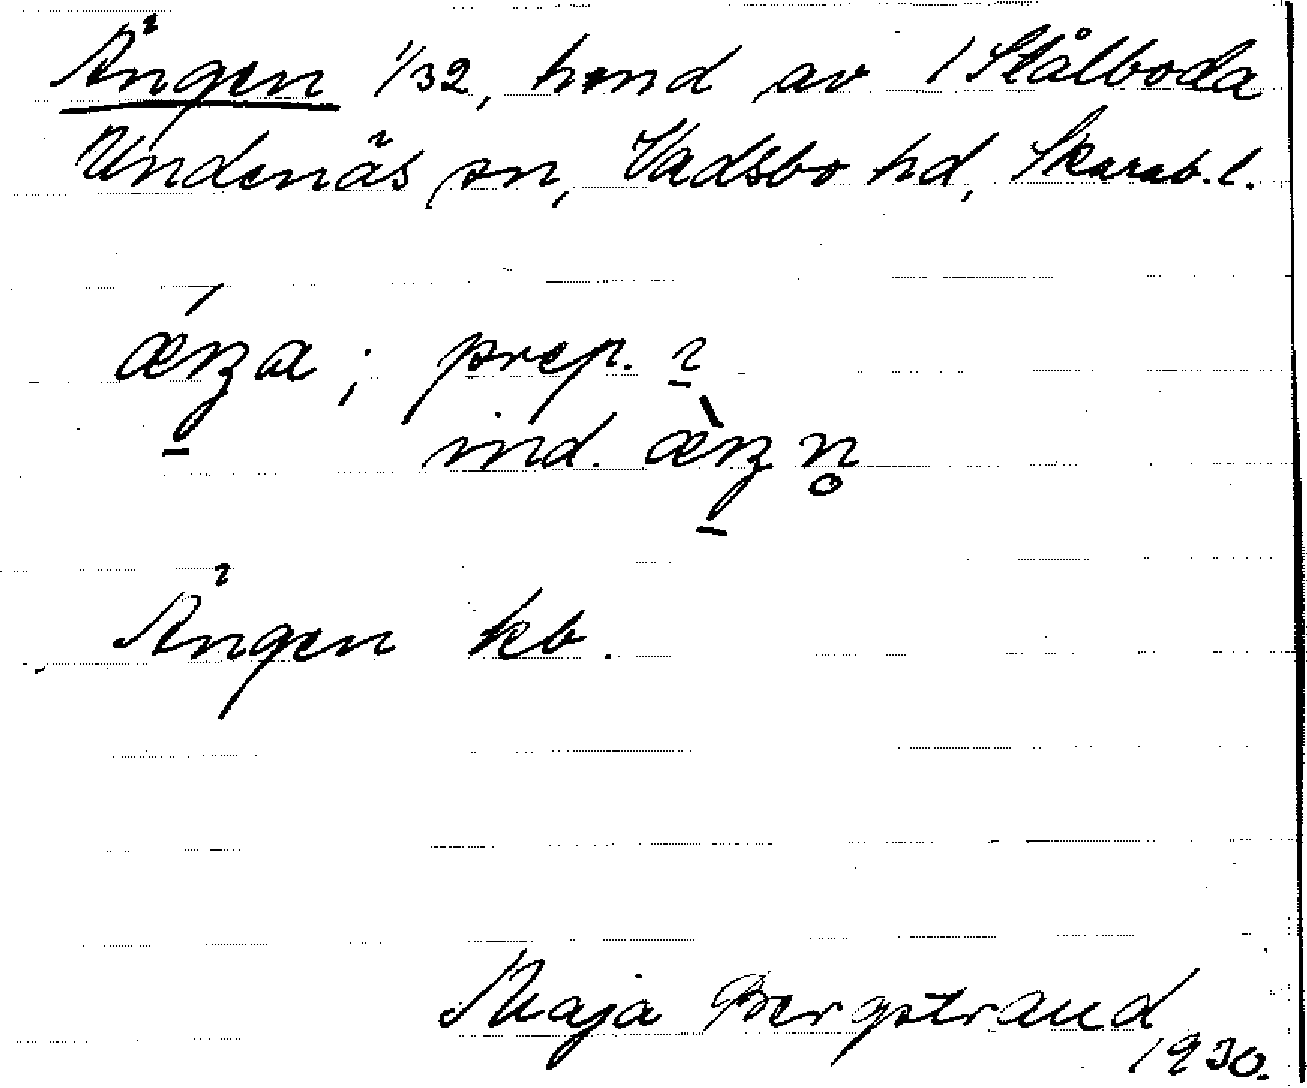 Ängen 1/32, hmd av 1 Stålboda
Undenäs sn, Vadsbo hd, Skarab. l.
ǽŋa; prep. ɩ
ind. æ̀ŋn̥
Ängen kb.
Maja Bergstrand
1930.